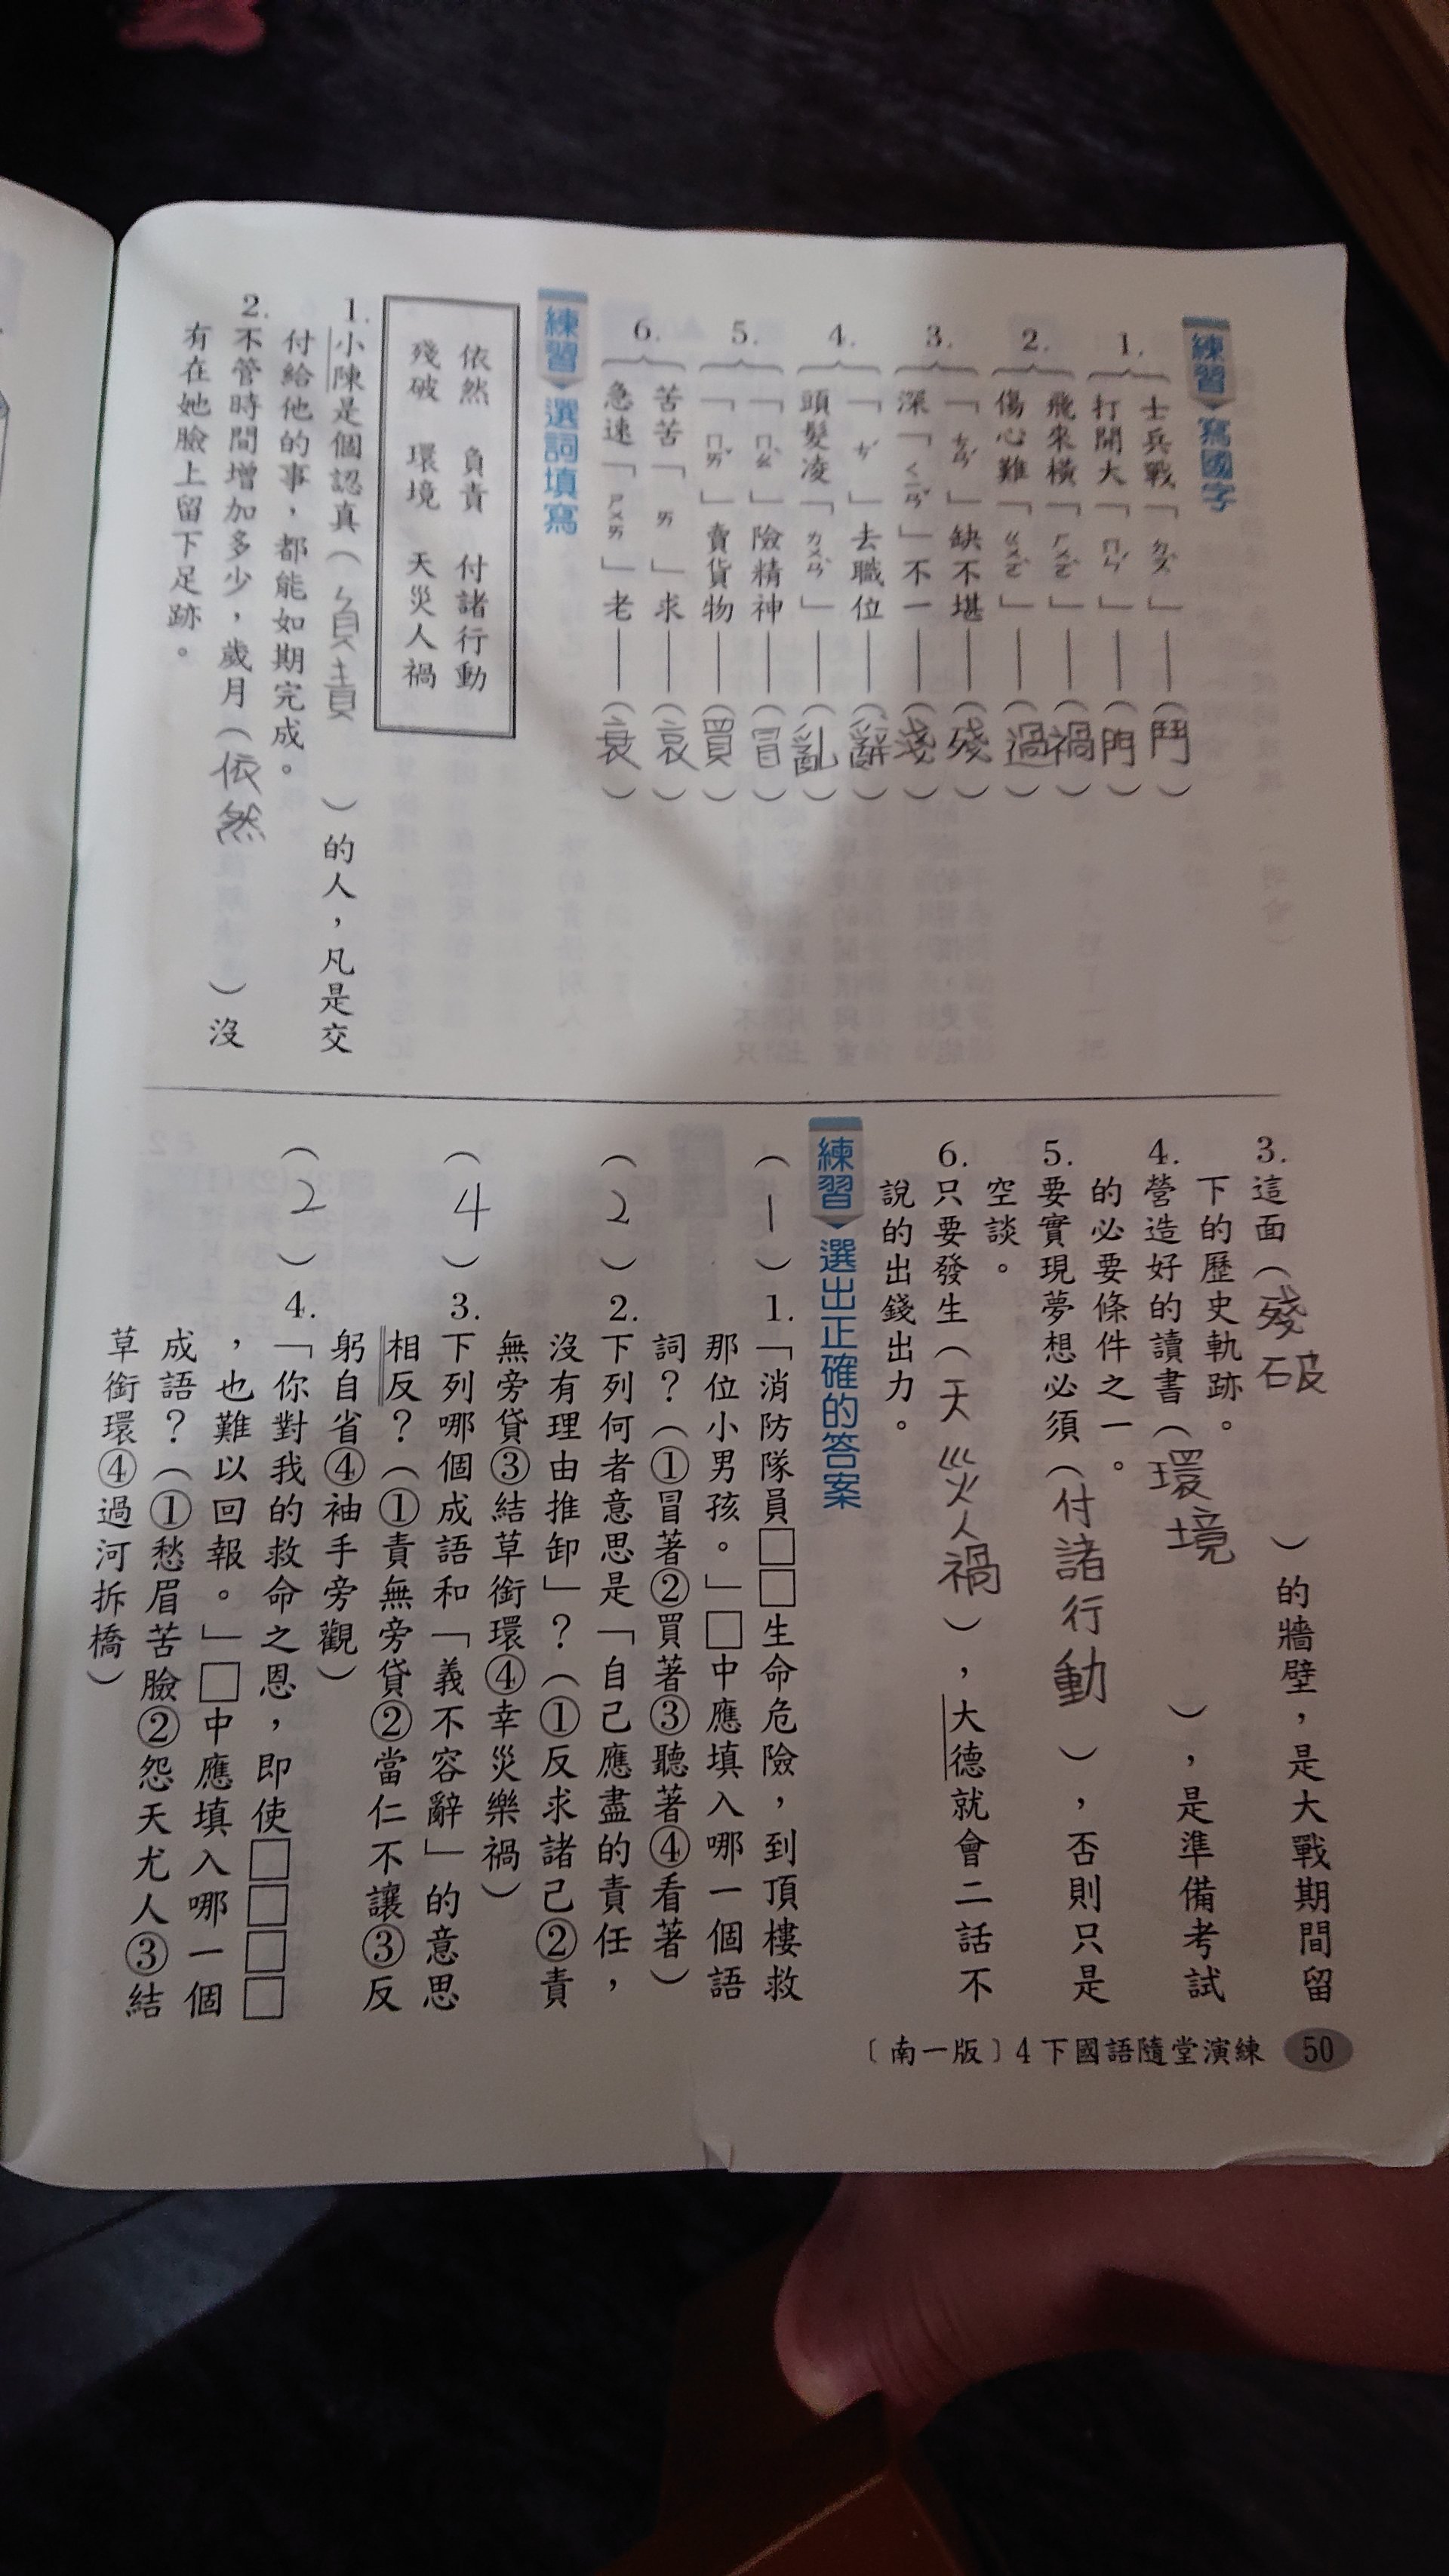 練習 寫國字
1. 士兵戰「ㄉㄡˋ」——(鬥)
打開大「ㄇㄣˊ」——(門)
2. 飛來橫「ㄏㄨㄛˋ」——(禍)
傷心難「ㄍㄨㄛˋ」——(過)
3. 「ㄘㄢˊ」缺不堪——(殘)
深「ㄑㄧㄢˇ」不一——(淺)
4. 「ㄘˊ」去職位——(辭)
頭髮凌「ㄌㄨㄢˋ」——(亂)
5. 「ㄇㄠˋ」險精神——(冒)
「ㄇㄞˇ」賣貨物——(買)
6. 苦苦「ㄞ」求——(哀)
急速「ㄕㄨㄞ」老——(衰)
練習 選詞填寫
依然 負責 付諸行動
殘破 環境 天災人禍
1. 小陳是個認真(負責)的人,凡是交
付給他的事,都能如期完成。
2. 不管時間增加多少,歲月(依然)沒
有在她臉上留下足跡。
3. 這面(殘破)的牆壁,是大戰期間留
下的歷史軌跡。
4. 營造好的讀書(環境),是準備考試
的必要條件之一。
5. 要實現夢想必須(付諸行動),否則只是
空談。
6. 只要發生(天災人禍),大德就會二話不
說的出錢出力。
練習 選出正確的答案
(1)1.「消防隊員□□生命危險,到頂樓救
那位小男孩。」□中應填入哪一個語
詞?(①冒著②買著③聽著④看著)
(2)2.下列何者意思是「自己應盡的責任,
沒有理由推卸」?(①反求諸己②責
無旁貸③結草銜環④幸災樂禍)
(4)3.下列哪個成語和「義不容辭」的意思
相反?(①責無旁貸②當仁不讓③反
躬自省④袖手旁觀)
(2)4.「你對我的救命之恩,即使□□□□
,也難以回報。」□中應填入哪一個
成語?(①愁眉苦臉②怨天尤人③結
草銜環④過河拆橋)
〔南一版〕4下國語隨堂演練 50